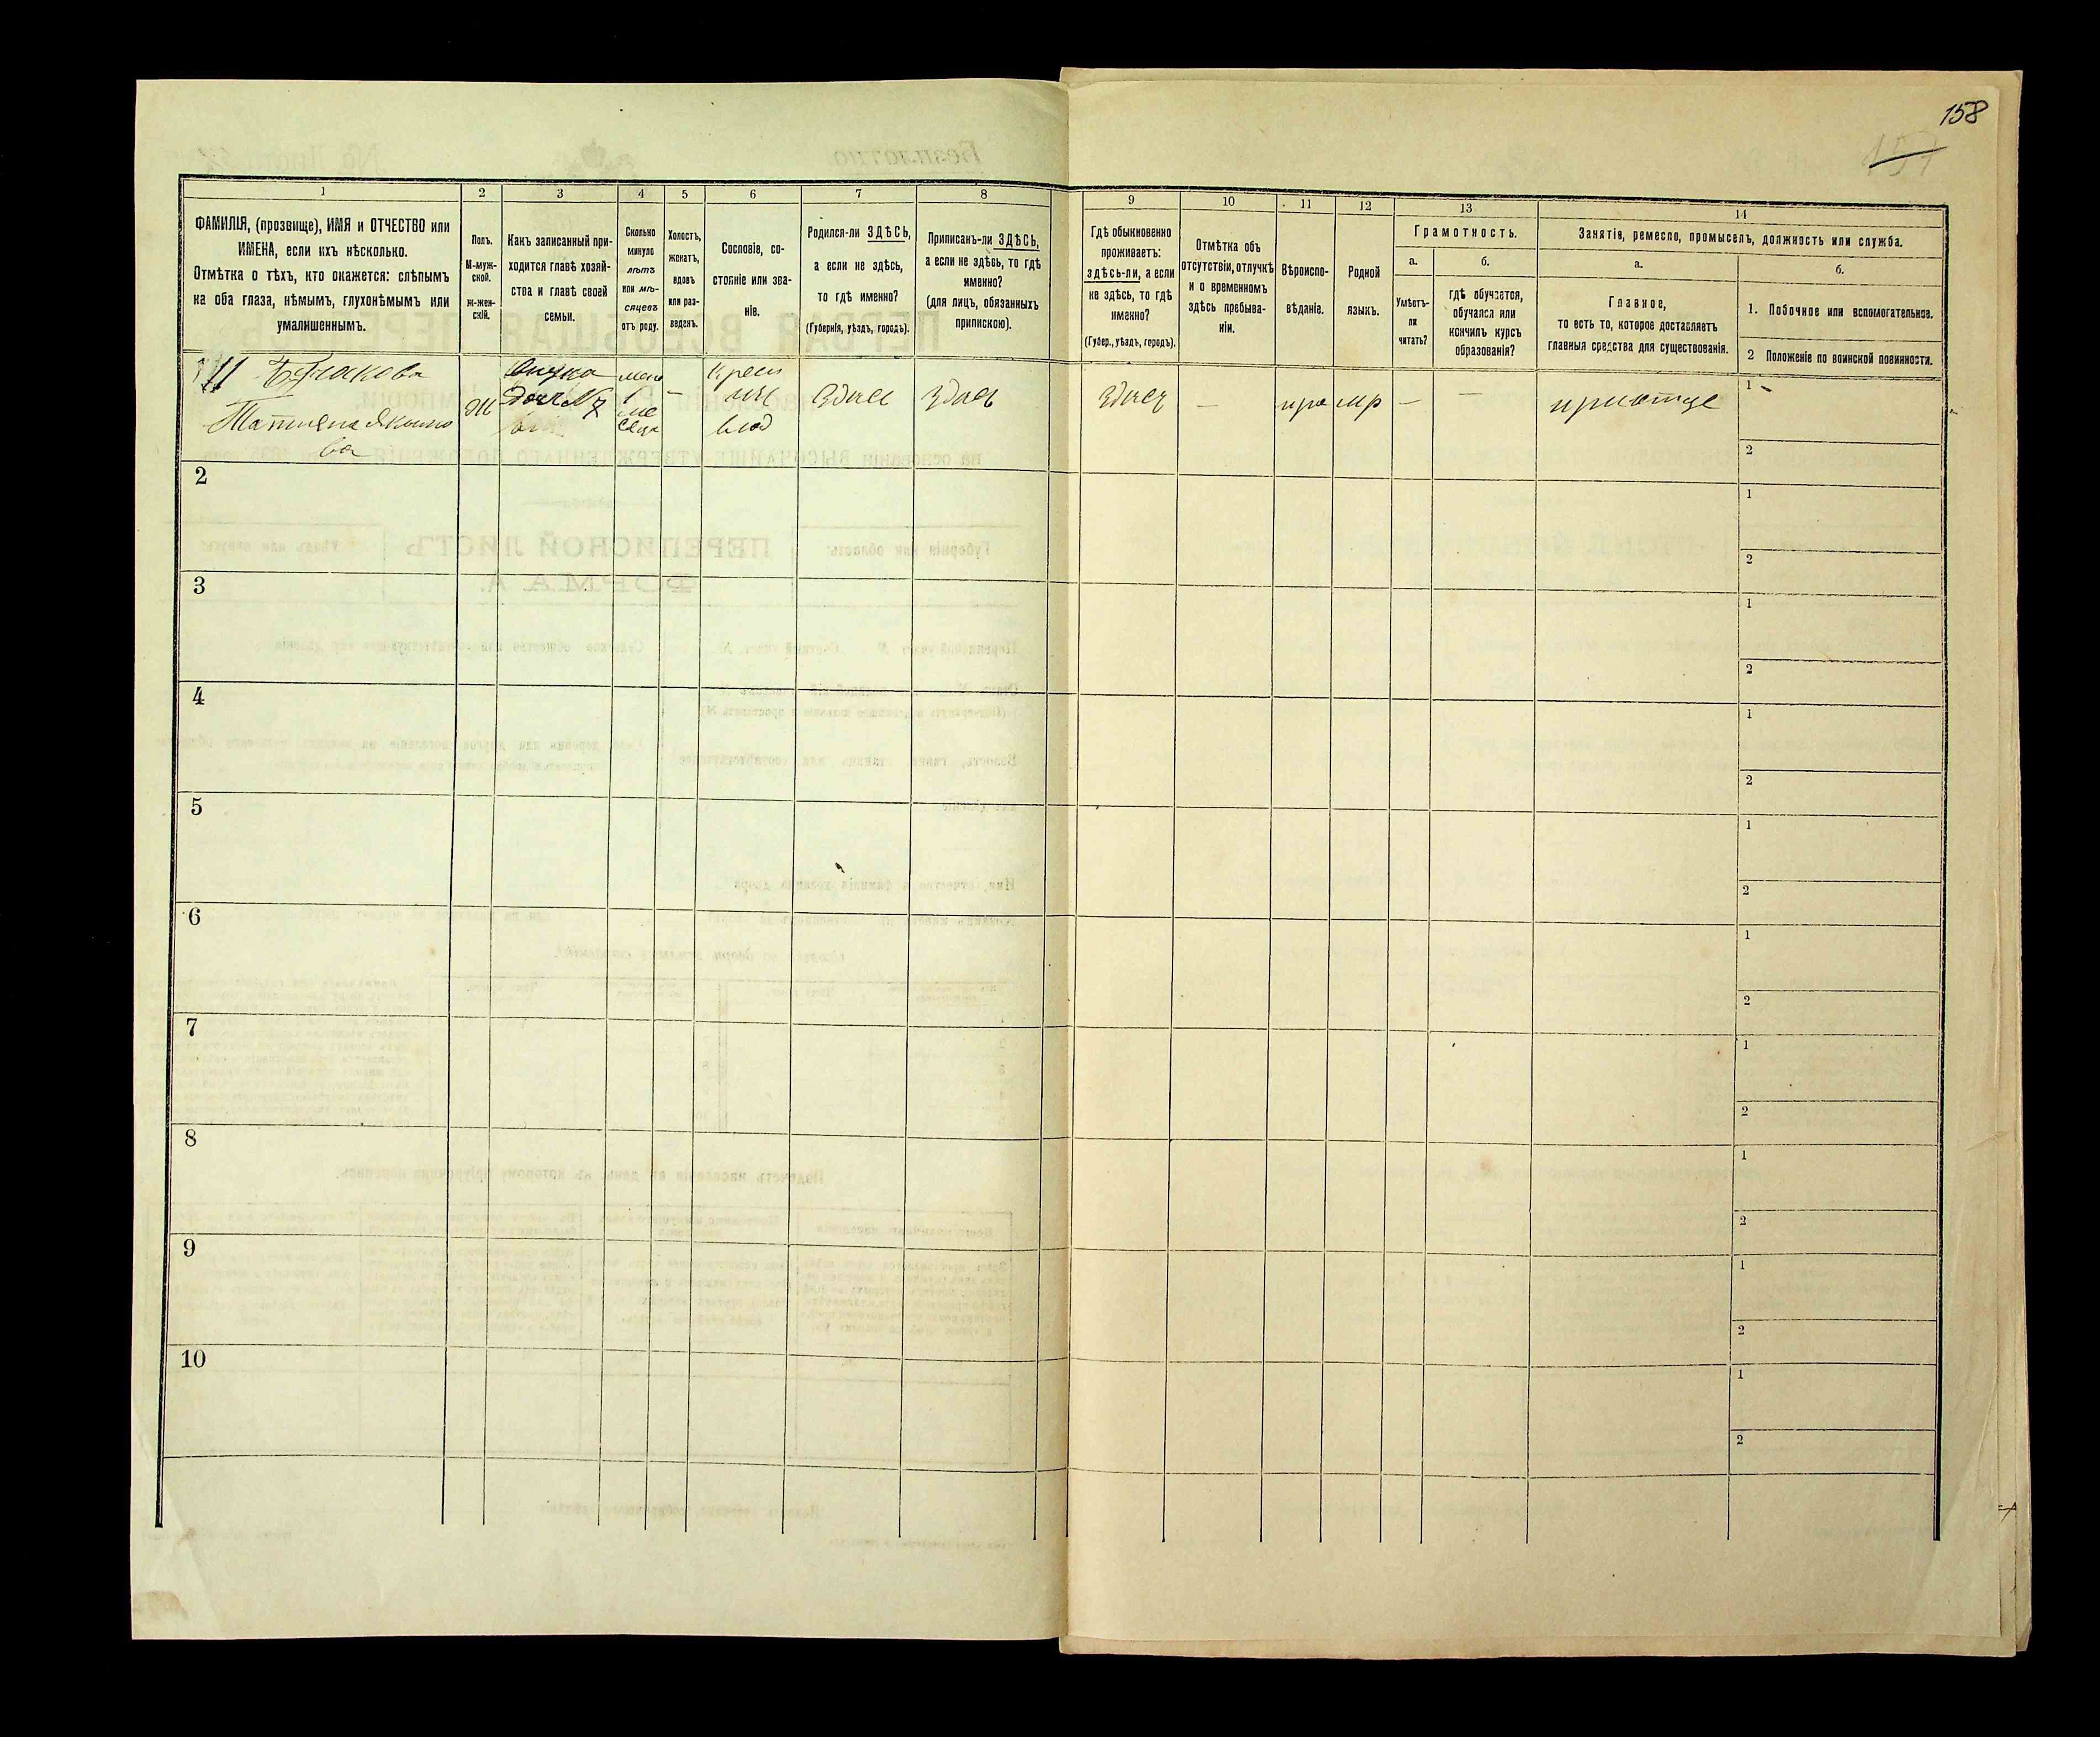 158
157
1
2
3
4
5
6
7
8
ФАМИЛІЯ, (прозвище), ИМЯ и ОТЧЕСТВО или
ИМЕНА, если ихъ нѣсколько.
Отмѣтка о тѣхъ, кто окажется: слѣпымъ
на оба глаза, нѣмымъ, глухонѣмымъ или
умалишеннымъ.
Полъ.
М-муж-
ской.
ж-жен-
скій.
Какъ записанный при-
ходится главѣ хозяй-
ства и главѣ своей
семьи.
Сколько
минуло
лѣтъ
или мѣ-
сяцевъ
отъ роду.
Холостъ,
женатъ,
вдовъ
или раз-
веденъ.
Сословіе, со-
стояніе или зва-
ніе.
Родился-ли ЗДѢСЬ,
а если не здѣсь,
то гдѣ именно?
(Губернія, уѣздъ, городъ).
Приписанъ-ли ЗДѢСЬ,
а если не здѣсь, то гдѣ
именно?
(для лицъ, обязанныхъ
припискою).
9
10
11
12
13
14
Гдѣ обыкновенно
проживаетъ:
здѣсь-ли, а если
не здѣсь, то гдѣ
именно?
(Губер., уѣздъ, городъ).
Отмѣтка объ
отсутствіи, отлучкѣ
и о временномъ
здѣсь пребыва-
ніи.
Вѣроиспо-
вѣданіе.
Родной
языкъ.
Грамотность.
а.
Умѣетъ-
ли
читать?
б.
гдѣ обучается,
обучался или
кончилъ курсъ
образованія?
Занятія, ремесло, промыселъ, должность или служба.
а.
Главное,
то есть то, которое доставляетъ
главныя средства для существованія.
б.
1. Побочное или вспомогательное.
2 Положеніе по воинской повинности.
11
Татіяна Якимо
ва
Ж
внука
1
крест
влад
Здись
Здись
Здись
—
пра
мр
—
—
1
2
2
1
2
3
1
2
4
1
2
5
1
2
6
1
2
7
1
2
8
1
2
9
1
2
10
1
2